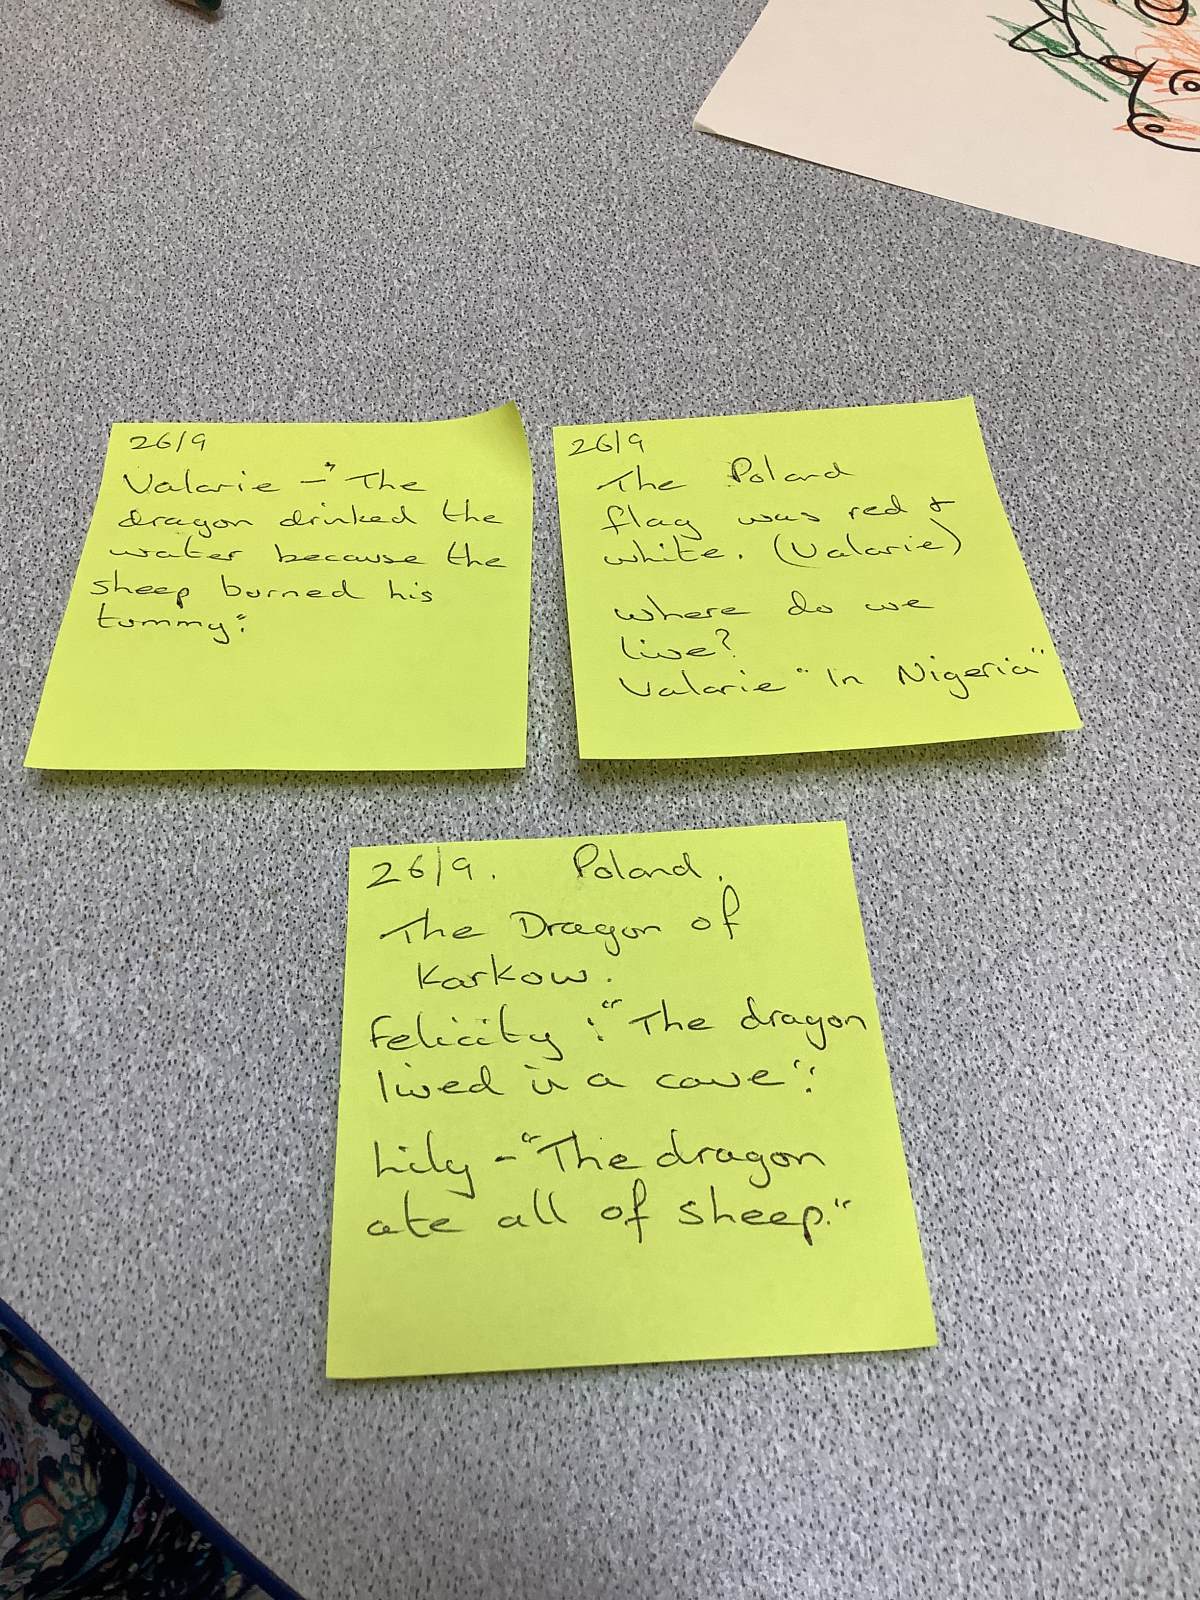 26/9
Valarie - "The
dragon drinked the
water because the
sheep burned his
tummy".
26/9
The Poland
flag was red &
white. (Valarie)
where do we
live?
Valarie "In Nigeria"
26/9. Poland.
The Dragon of
Karkow.
Felicity : "The dragon
lived in a cave".
Lily - "The dragon
ate all of sheep."